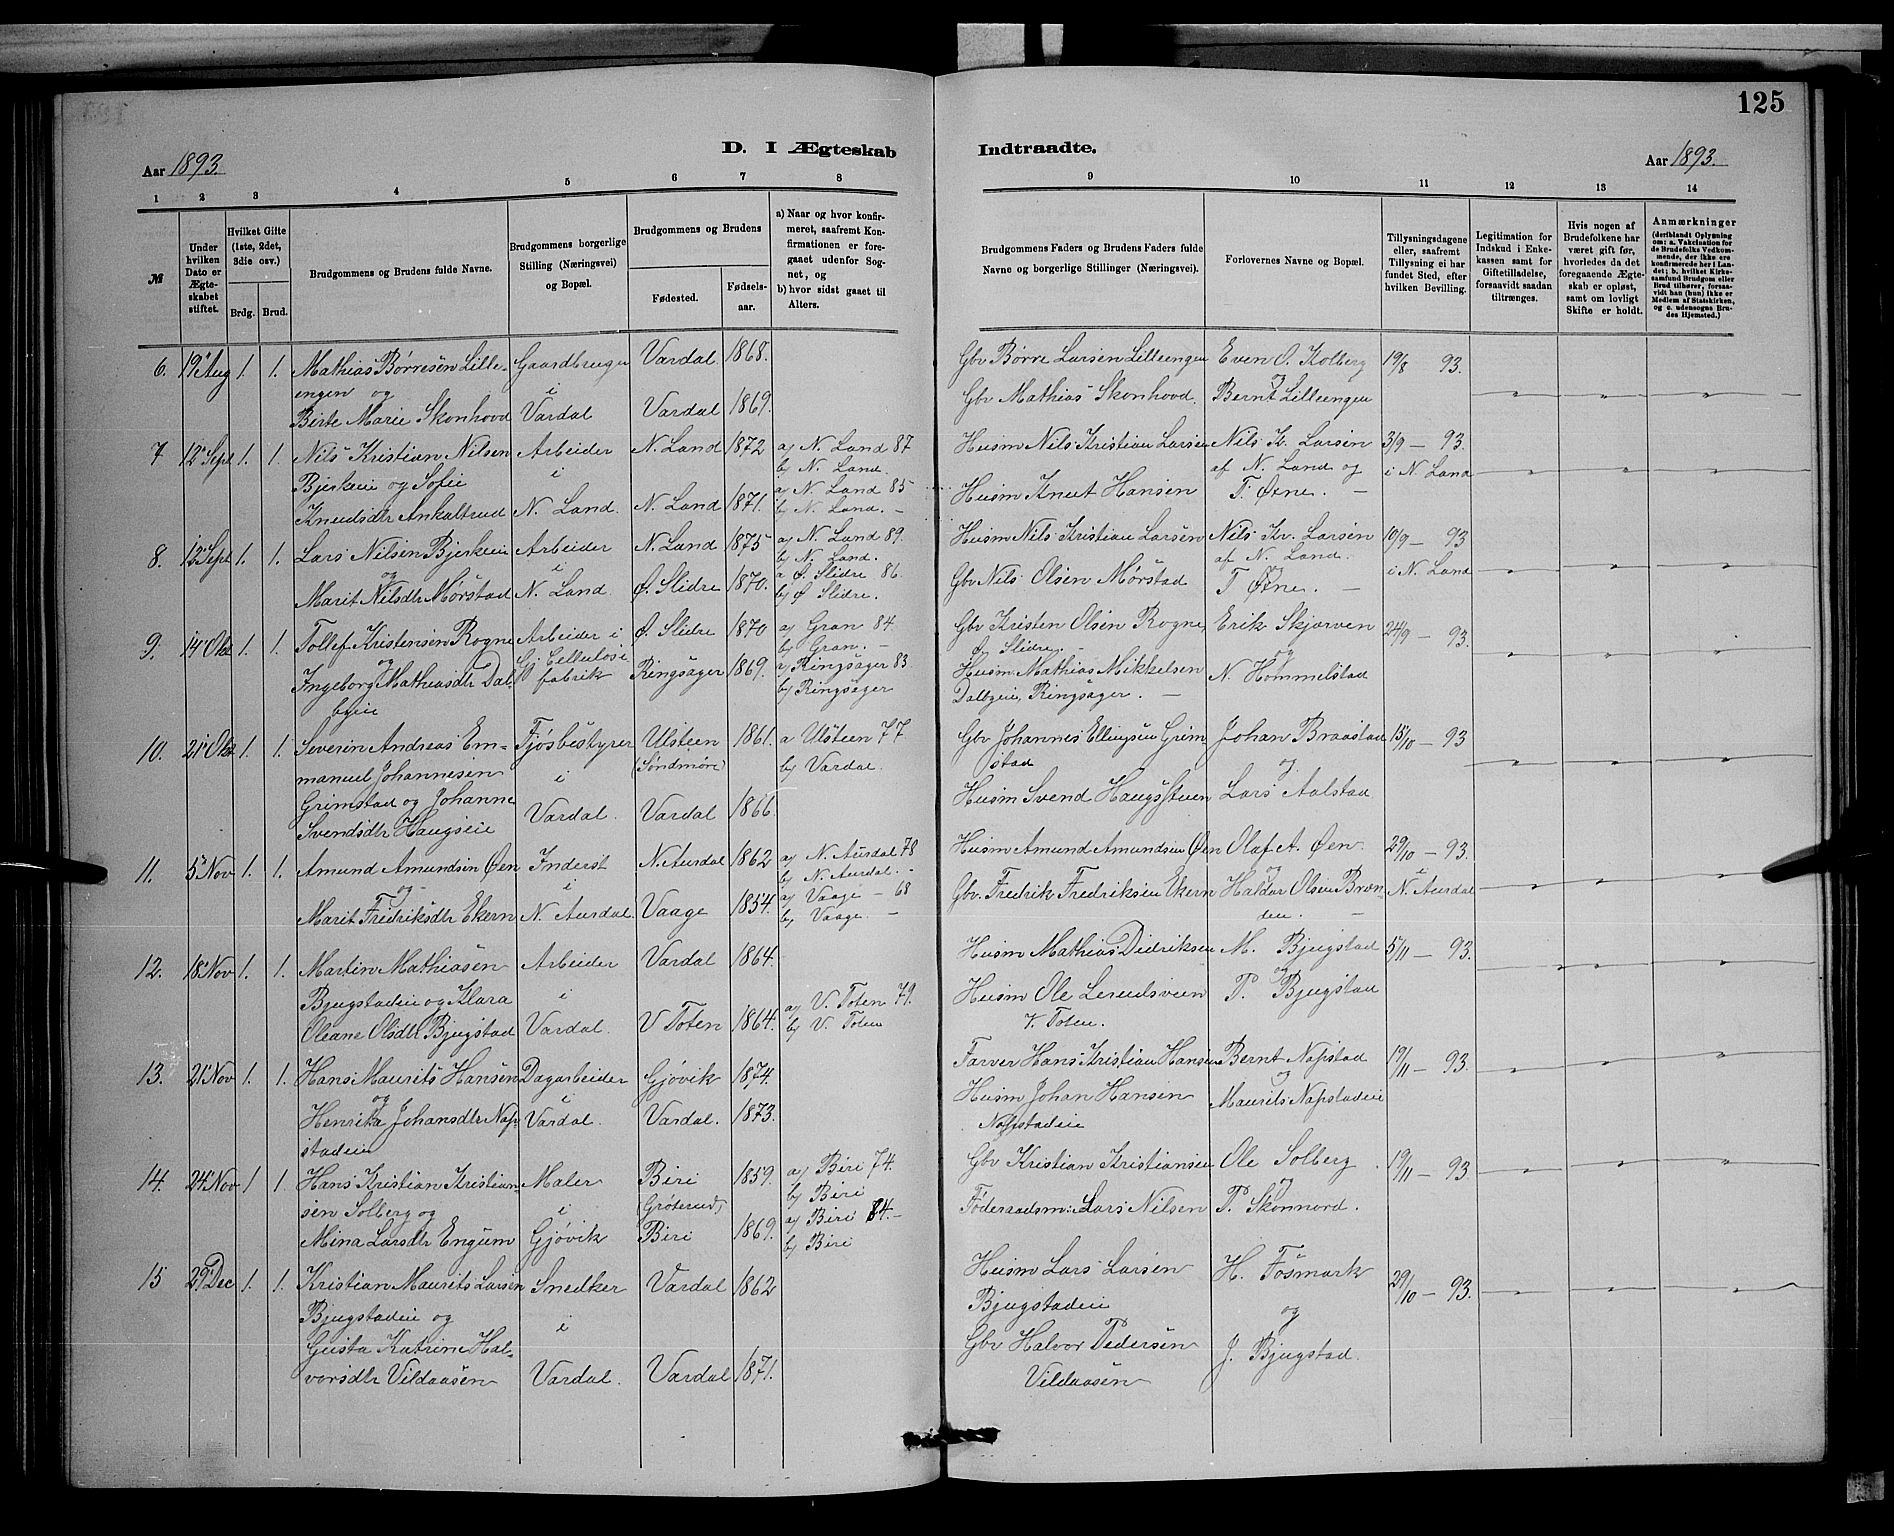 125
D. I Ægteskab Indtraadte.
Aar 1893.
Aar 1893.
1 2 3 4 5 6 7 8 9 10 11 12 13 14
№
Under hvilken Dato er Ægteskabet stiftet.
Hvilket Gifte (1ste, 2det, 3die osv.)
Brdg. Brud.
Brudgommens og Brudens fulde Navne.
Brudgommens borgerlige Stilling (Næringsvei) og Bopæl.
Brudgommens og Brudens
Fødested.
Fødselsaar.
a) Naar og hvor konfirmeret, saafremt Konfirmationen er foregaaet udenfor Sognet, og
b) hvor sidst gaaet til Alters.
Brudgommens Faders og Brudens Faders fulde Navne og borgerlige Stillinger (Næringsvei).
Forlovernes Navne og Bopæl.
Tillysningsdagene eller, saafremt Tillysning ei har fundet Sted, efter hvilken Bevilling.
Legitimation for Indskud i Enkekassen samt for Giftetilladelse, forsaavidt saadan tiltrænges.
Hvis nogen af Brudefolkene har været gift før, hvorledes da det foregaaende Ægteskab er opløst, samt om lovligt Skifte er holdt.
Anmærkninger (deriblandt Oplysning om: a. Vakcination for de Brudefolks Vedkommende, der ikke ere konfirmerede her i Landet; b. hvilket Kirkesamfund Brudgom eller Brud tilhører, forsaavidt han (hun) ikke er Medlem af Statskirken, og c. udensogns Brudes Hjemsted.)
6. 19 Aug 1. 1. Mathias Børresen Lille- Gaardbruger Vardal 1868. Gbr Børre Larsen Lilleengen Even O. Kolberg 19/8 93.
engen og i og
Birte Marie Skonhovd Vardal Vardal 1869. Gbr Mathias Skonhovd. Bernt Lilleengen
7 12 Sept 1. 1. Nils Kristian Nilsen Arbeider N. Land 1872 a) N. Land 87 Husm Nils Kristian Larsen Nils Kr. Larsen 3/9 - 93.
Bjerkeie og Sofie i b) N. Land. af N. Land og i N. Land
Knudsdtr Ankaltrud N. Land. N. Land 1871. a) N. Land 85 Husm Knut Hansen T. Øxne. -
b) N. Land. -
8. 12 Sept 1. 1. Lars Nilsen Bjerkeie Arbeider N. Land 1875 a) N. Land 89. Husm Nils Kristian Larsen Nils Kr. Larsen 10/9 - 93
og i b) N. Land. af N. Land. i N. Land
Marit Nilsdtr Mørstad N. Land. Ø. Slidre 1870. a Ø. Slidre 86. Gbr Nils Olsen Mørstad og T Øxne. -
b) Ø Slidre.
9. 14 Okt 1. 1. Tollef Kristensen Rogne Arbeider i Ø. Slidre 1870 a) Gran 84. Gbr Kristen Olsen Rogne, Erik Skjørven 24/9 - 93.
og Gj. Cellulose b) Gran. - Ø. Slidre. - og
Ingeborg Mathiasdtr Dal- fabrik Ringsager 1869. a) Ringsager 83 Husm Mathias Mikkelsen N. Hommelstad
byeie b) Ringsager Dalbyeie, Ringsager. -
10. 21 Okt 1. 1. Severin Andreas Em- Fjøsbestyrer Ulsteen 1861. a Ulsteen 77 Gbr Johannes Ellingsen Grim Johan Braastad 15/10 - 93
manuel Johannesen i (Søndmøre) b) Vardal. stad og
Grimstad og Johanne Vardal. Vardal 1866. Husm Svend Haugsstuen Lars Aalstad
Svendsdtr Haugseie
11. 5 Nov 1. 1. Amund Amundsen Øen Inderst N. Aurdal 1862 a) N. Aurdal 78 Husm Amund Amundsen Øen Olaf A. Øen. 29/10 - 93.
og i b) N. Aurdal. - og i
Marit Fredriksdtr Ekern N. Aurdal. Vaage 1854. a) Vaage - 68 Gbr. Fredrik Fredriksen Ekern Haldor Olsen Bræn- N. Aurdal
b) Vaage. - den. -
12. 18 Nov 1. 1. Martin Mathiasen Arbeider Vardal 1864. Husm Mathias Didriksen M. Bjugstad 5/11 - 93.
Bjugstadeie og Klara i a) V. Toten 79. Husm Ole Lerudsveen og P. Bjugstad
Oleane Olsdtr Bjugstad Vardal. V Toten 1864. b) V. Toten V. Toten.
13. 21 Nov 1. 1. Hans Maurits Hansen Dagarbeider Gjøvik 1874. Farver Hans Kristian Hansen Bernt Napstad 19/11 - 93.
og i og
Henrika Johansdtr Nap- Vardal. Vardal. 1873. Husm Johan Hansen Maurits Napstadeie
stadeie Napstadeie
14. 24 Nov 1 1. Hans Kristian Kristian- Maler Biri 1859. a) Biri 74. Gbr Kristian Kristiansen Ole Solberg 19/11 - 93.
sen Solberg og i (Grøterud) b) Biri og
Mina Larsdtr Engum Gjøvik Biri 1869. a) Biri 84. - Føderaadsm: Lars Nilsen P. Skonnord.
b) Biri
15 29 Dec 1. 1. Kristian Maurits Larsen Snedker Vardal 1862 Husm Lars Larsen H. Fosmark 29/10 - 93.
Bjugstadeie og i Bjugstadeie og
Gusta Katrine Hal- Gbr Halvor Pedersen J. Bjugstad.
vorsdtr Vildaasen Vardal. Vardal 1871. Vildaasen